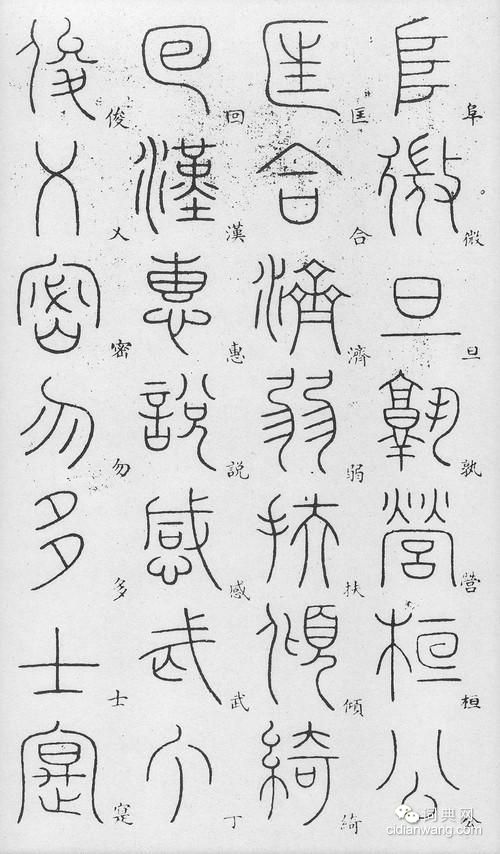 阜微旦孰營桓公
匡合濟弱扶傾綺
回漢惠說感武丁
俊乂密勿多士寔
词典网
cidianwang.com